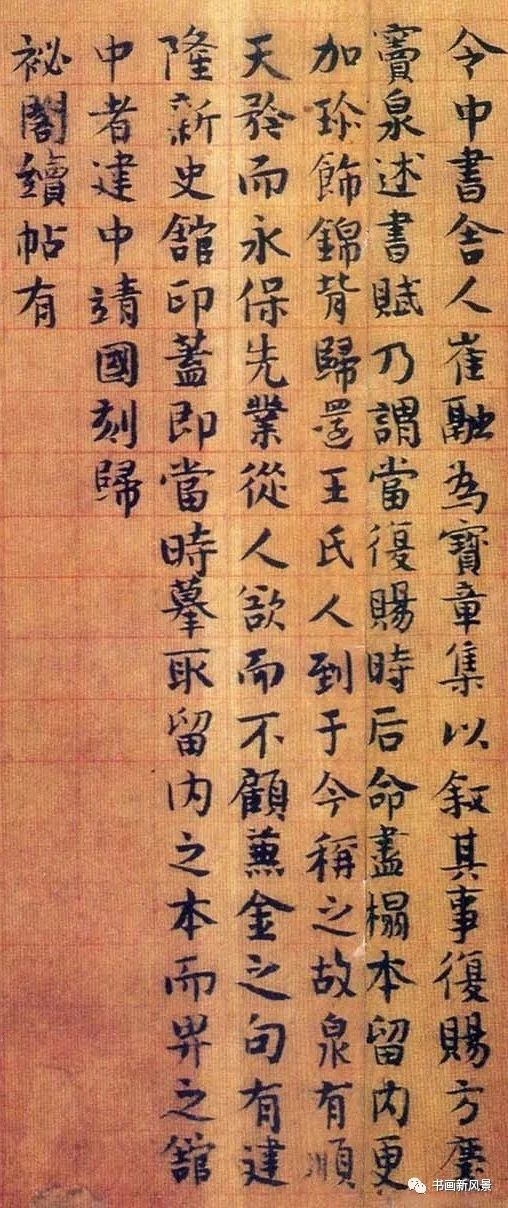 令中書舍人崔融為寶章集以叙其事復賜方慶
竇泉述書賦乃謂當復賜時后命盡榻本留内更
加珍飾錦背歸還王氏人到于今稱之故泉有順
天矜而永保先業從人欲而不顧兼金之句有建
隆新史館印蓋即當時摹取留内之本而畀之館
中者建中靖國刻歸
祕閣續帖有
书画新风景